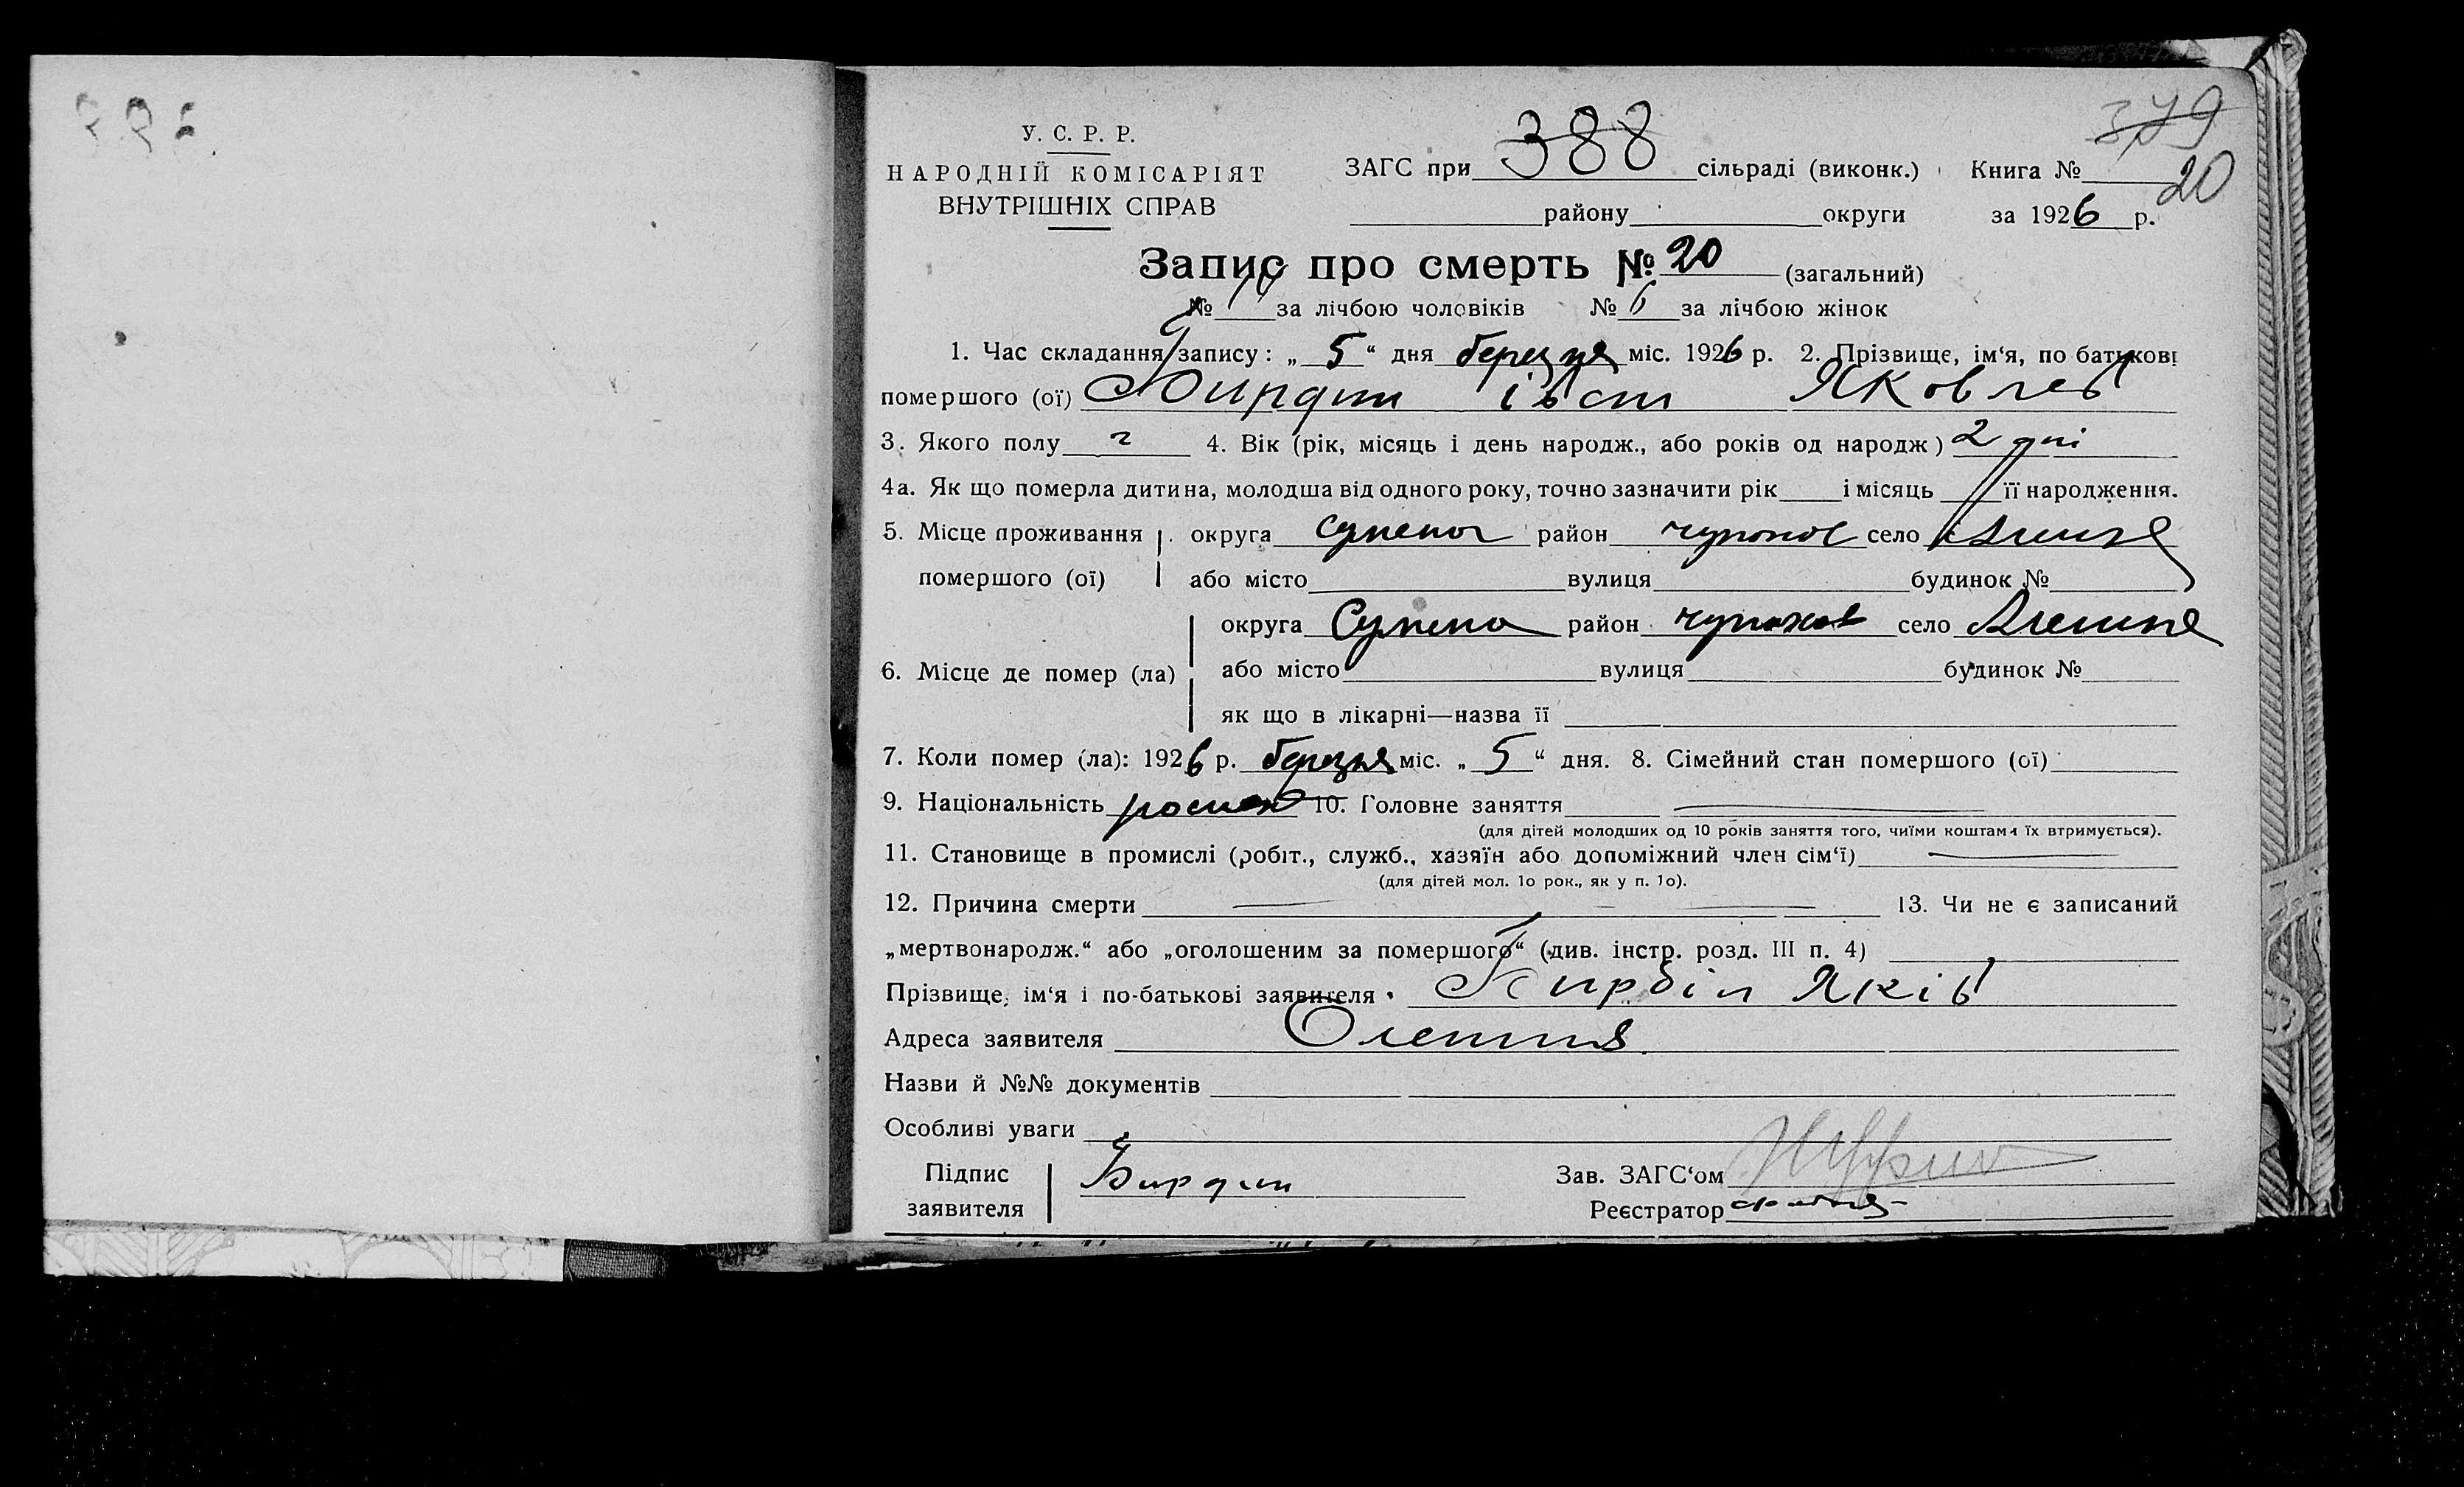 379
У. С. Р. Р.
НАРОДНІЙ КОМІСАРІЯТ
ВНУТРІШНІХ СПРАВ
ЗАГС при 388 сільраді (виконк.) Книга № 20
району округи за 1926 р.
Запис про смерть № 20 (загальний)
№ за лічбою чоловіків № 6 за лічбою жінок
1. Час складання запису: „ 5 “ дня березня міс. 1926 р. 2. Прізвище, ім‘я, по батькові
помершого (ої) іван Яковлев
3. Якого полу ч 4. Вік (рік, місяць і день народж., або років од народж) 2 дні
4а. Як що померла дитина, молодша від одного року, точно зазначити рік і місяць її народження.
5. Місце проживання округа район село
помершого (ої) або місто вулиця будинок №
округа район село
6. Місце де помер (ла) або місто вулиця будинок №
як що в лікарні—назва її
7. Коли помер (ла): 1926 р. березня міс. „ 5 “ дня. 8. Сімейний стан помершого (ої)
9. Національність 10. Головне заняття
(для дітей молодших од 10 років заняття того, чиїми коштами їх втримується).
11. Становище в промислі (робіт., служб., хазяїн або допоміжний член сім‘ї)
(для дітей мол. 1о рок., як у п. 1о).
12. Причина смерти 13. Чи не є записаний
„мертвонародж.“ або „оголошеним за помершого“ (див. інстр. розд. III п. 4)
Прізвище, ім‘я і по-батькові заявителя Яків
Адреса заявителя
Назви й №№ документів
Особливі уваги
Підпис
заявителя
Зав. ЗАГС‘ом
Реєстратор